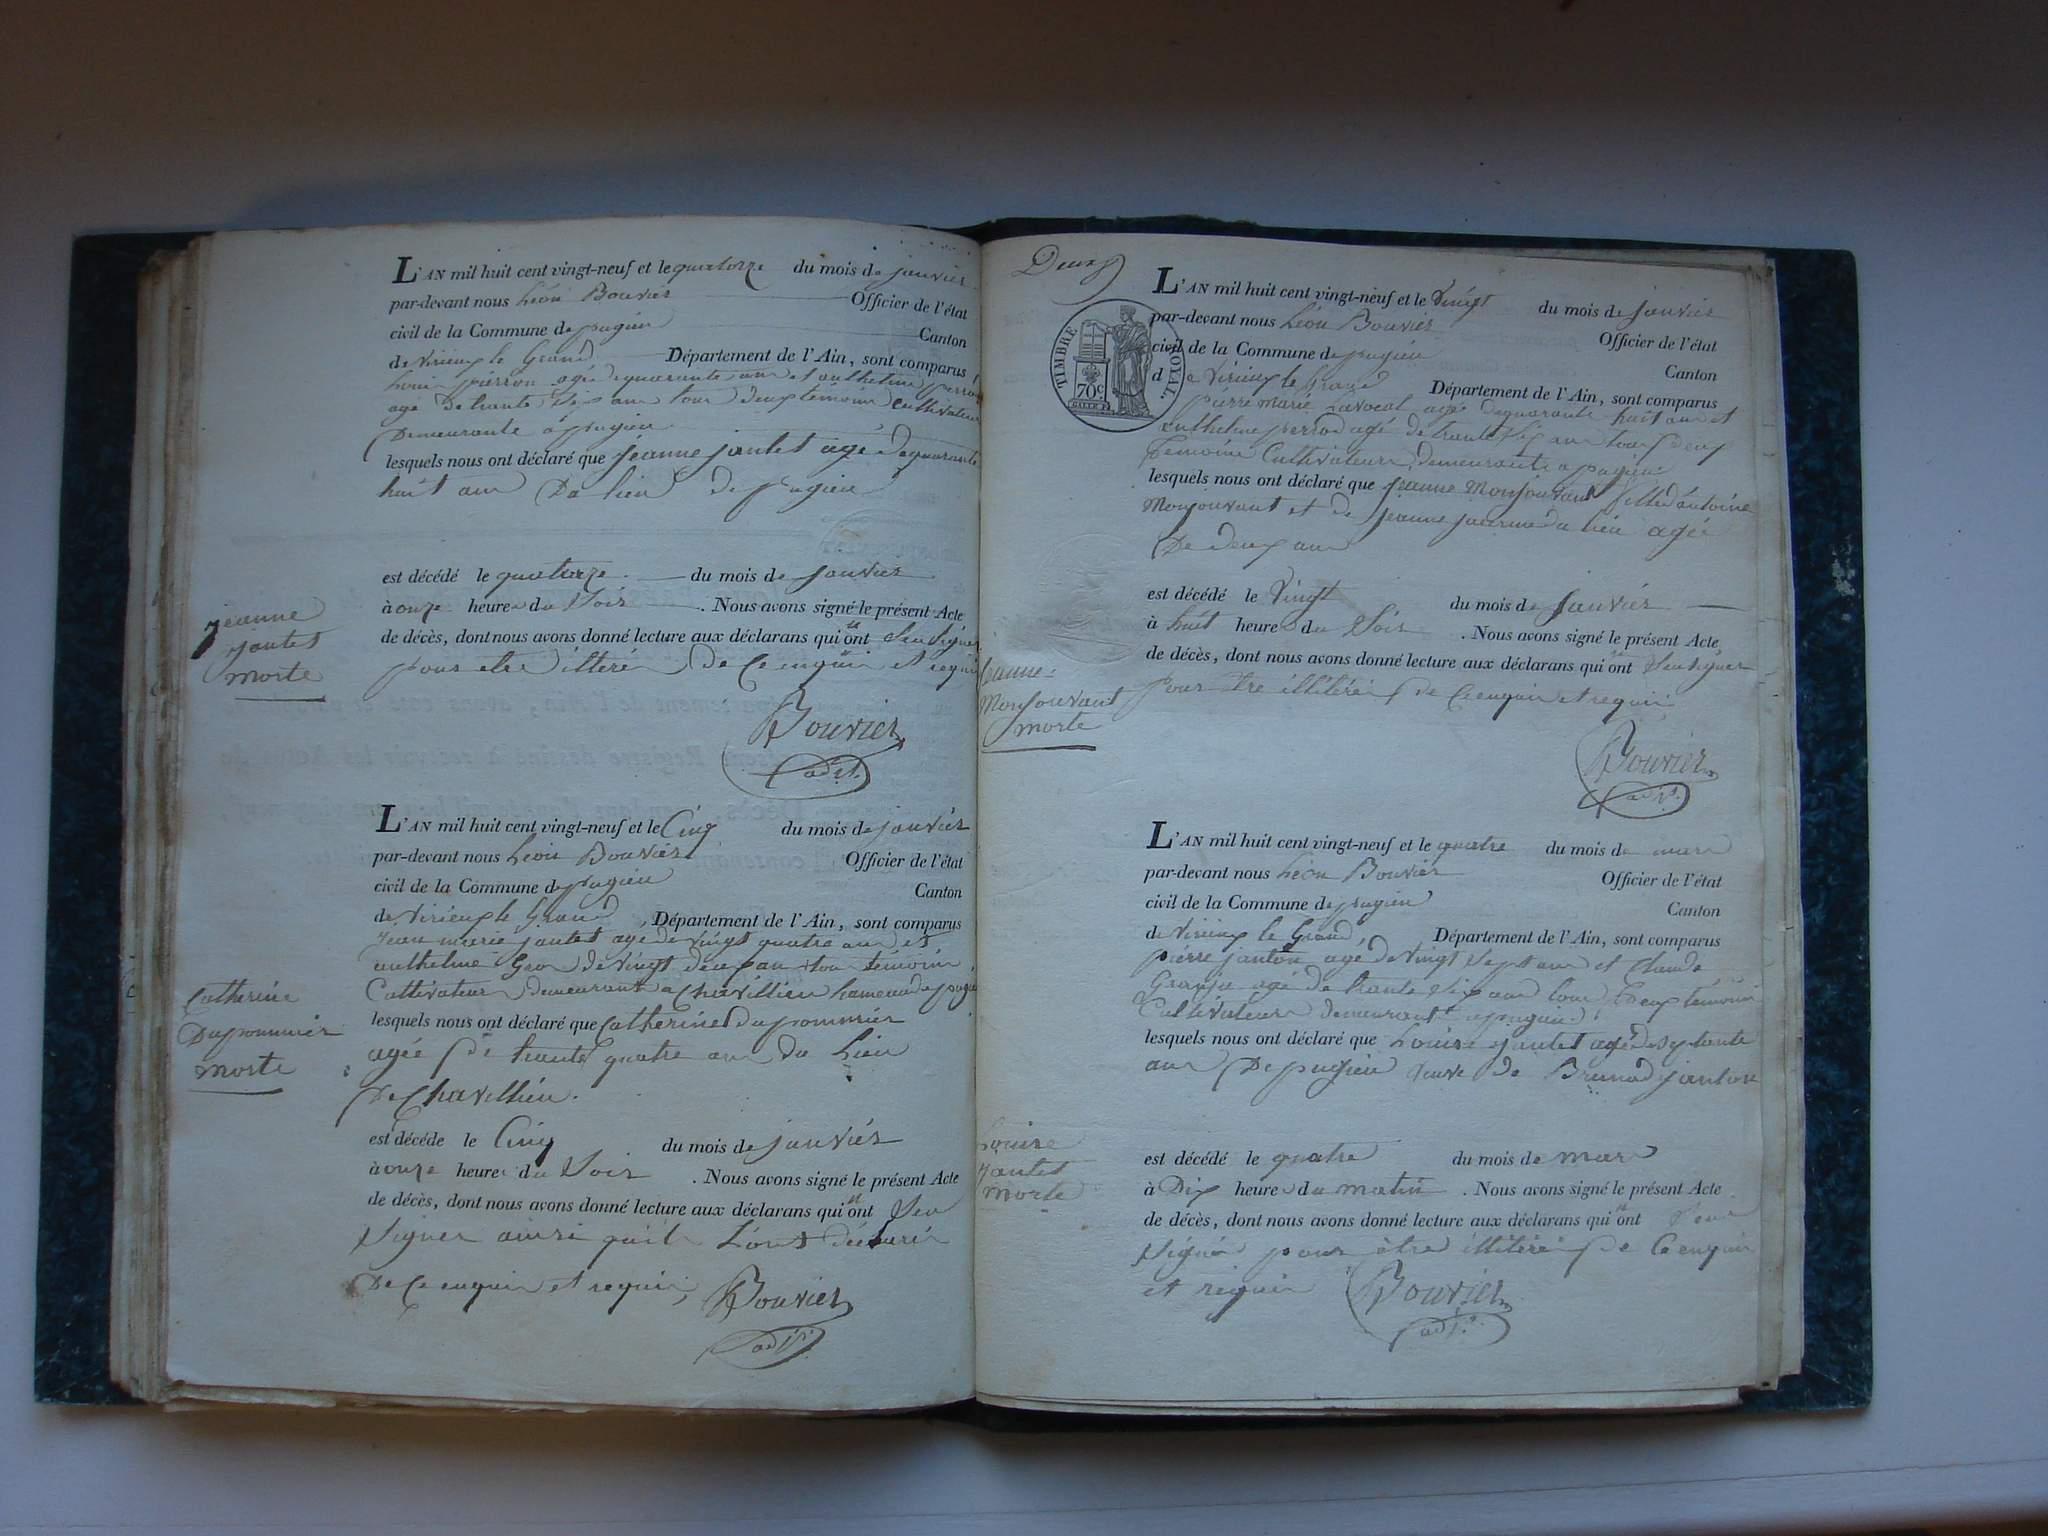 L'AN mil huit cent vingt-neuf et le quatorze du mois de janvier
par-devant nous Léon Bouvier Officier de l'état
civil de la Commune de pugieu Canton
de Virieu le Grand Département de l'Ain, sont comparus
Louis pierron agé dequarante ans et anthelme perrod
agé De trante six ans tous deux temoins Cultivateurs
Demeurants a pugieu
lesquels nous ont déclaré que jeanne jantet agé Dequarante
huit ans Du lieu de pugieu
est décédé le quatorze du mois de janvier
à onze heures du Soir . Nous avons signé le présent Acte
de décès, dont nous avons donné lecture aux déclarans qui n'ont Seu Signer
pour etre illiterés De Ce enquis et requis
jeanne
jantet
morte
Bouvier
adjt.
L'AN mil huit cent vingt-neuf et le Cinq du mois de janvier
par-devant nous Léon Bouvier Officier de l'état
civil de la Commune de pugieu Canton
de Virieu le Grand , Département de l'Ain, sont comparus
Jean marie jantet agé de vingt quatre ans et
anthelme Gros de vingt deux ans tous témoins
Cultivateurs demeurants a Chavillieu hameau de pugieu
lesquels nous ont déclaré que Catherine Dupommier
agée De trante quatre ans du Lieu
De Chavillieu.
Catherine
Dupommier
morte
est décédé le Cinq du mois de janvier
à onze heures du Soir . Nous avons signé le présent Acte
de décès, dont nous avons donné lecture aux déclarans qui n'ont Seu
Signer ainsi qu'ils L'ont déclaré
De Ce enquis et requis,
Bouvier
adjt.
Deux
TIMBRE ROYAL.
70c.
L'AN mil huit cent vingt-neuf et le Vingt du mois de janvier
par-devant nous Léon Bouvier Officier de l'état
civil de la Commune de pugieu Canton
de Virieu le Grand Département de l'Ain, sont comparus
pierre marie Lavocat agé dequarante huit ans et
anthelme perrod agé de trante six ans tous deux
Temoins Cultivateurs demeurants a pugieu
lesquels nous ont déclaré que jeanne Monjouvant fille d'antoine
Monjouvant et de jeanne du lieu agée
De deux ans
est décédé le Vingt du mois de janvier
à huit heures du Soir . Nous avons signé le présent Acte
de décès, dont nous avons donné lecture aux déclarans qui n'ont Seu signer
pour être illiterés De Ce enquis et requis
jeanne
Monjouvant
morte
Bouvier
adjt.
L'AN mil huit cent vingt-neuf et le quatre du mois de mars
par-devant nous Léon Bouvier Officier de l'état
civil de la Commune de pugieu Canton
de Virieu le Grand Département de l'Ain, sont comparus
pierre janton agé de vingt sept ans et Claude
Granju agé de trante six ans tous Deux témoins
Cultivateurs demeurant a pugieu
lesquels nous ont déclaré que Louise jantet agé de septante
ans De pugieu veuve de Brunod janton
Louise
jantet
morte
est décédé le quatre du mois de mars
à Dix heures du matin . Nous avons signé le présent Acte
de décès, dont nous avons donné lecture aux déclarans qui n'ont Seus
Signé pour être illiterés De Ce enquis
et requis
Bouvier
adjt.